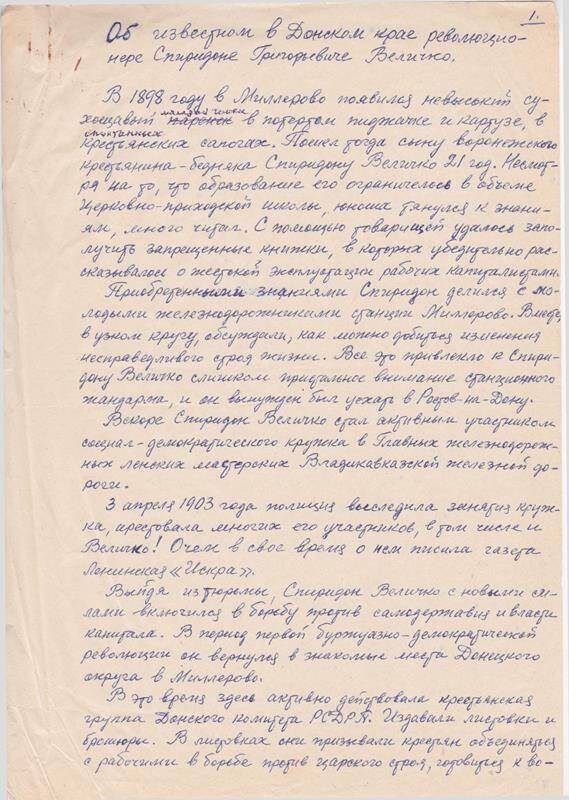 1.
Об известном в Донском крае революцио-
нере Спиридоне Григорьевиче Величко.
В 1898 году в Миллерово появился невысокий су-
хощавый паренек в потертом пиджачке и картузе, в
стоптанных
крестьянских сапогах. Пошел тогда сыну воронежского
крестьянина-бедняка Спиридону Величко 21 год. Несмот-
ря на то, что образование его ограничелось в объеме
церковно-приходской школы, юноша тянулся к знани-
ям, много читал. С помощью товарищей удалось запо-
лучить запрещенные книжки, в которых убедительно рас-
сказывалось о жестокой эксплуатации рабочих капиталистами.
Приобретенными знаниями Спиридон делился с мо-
лодыми железнодорожниками станции Миллерово. Вместе,
в узком кругу, обсуждали, как можно добиться изменения
несправедливого строя жизни. Все это привлекло к Спири-
дону Величко слишком пристальное внимание станционного
жандарма, и он вынужден был уехать в Ростов-на-Дону.
Вскоре Спиридон Величко стал активным участником
социал-демократического кружка в Главных железнодорож-
ных Ленских мастерских Владикавказской железной до-
роги.
3 апреля 1903 года полиция выследила занятия круж-
ка, арестовала многих его участников, в том числе и
Величко! О чем в свое время о нем писала газета
Ленинская «Искра».
Выйдя из тюрьмы, Спиридон Величко с новыми си-
лами включился в борьбу против самодержавия и власти
капитала. В период первой буржуазно-демократической
революции он вернулся в знакомые места Донецкого
округа в Миллерово.
В это время здесь активно действовала крестьянская
группа Донского комитета РСДРП. Издавали листовки и
брошюры. В листовках они призывали крестьян объединяться
с рабочими в борьбе против царского строя, готовиться к во-